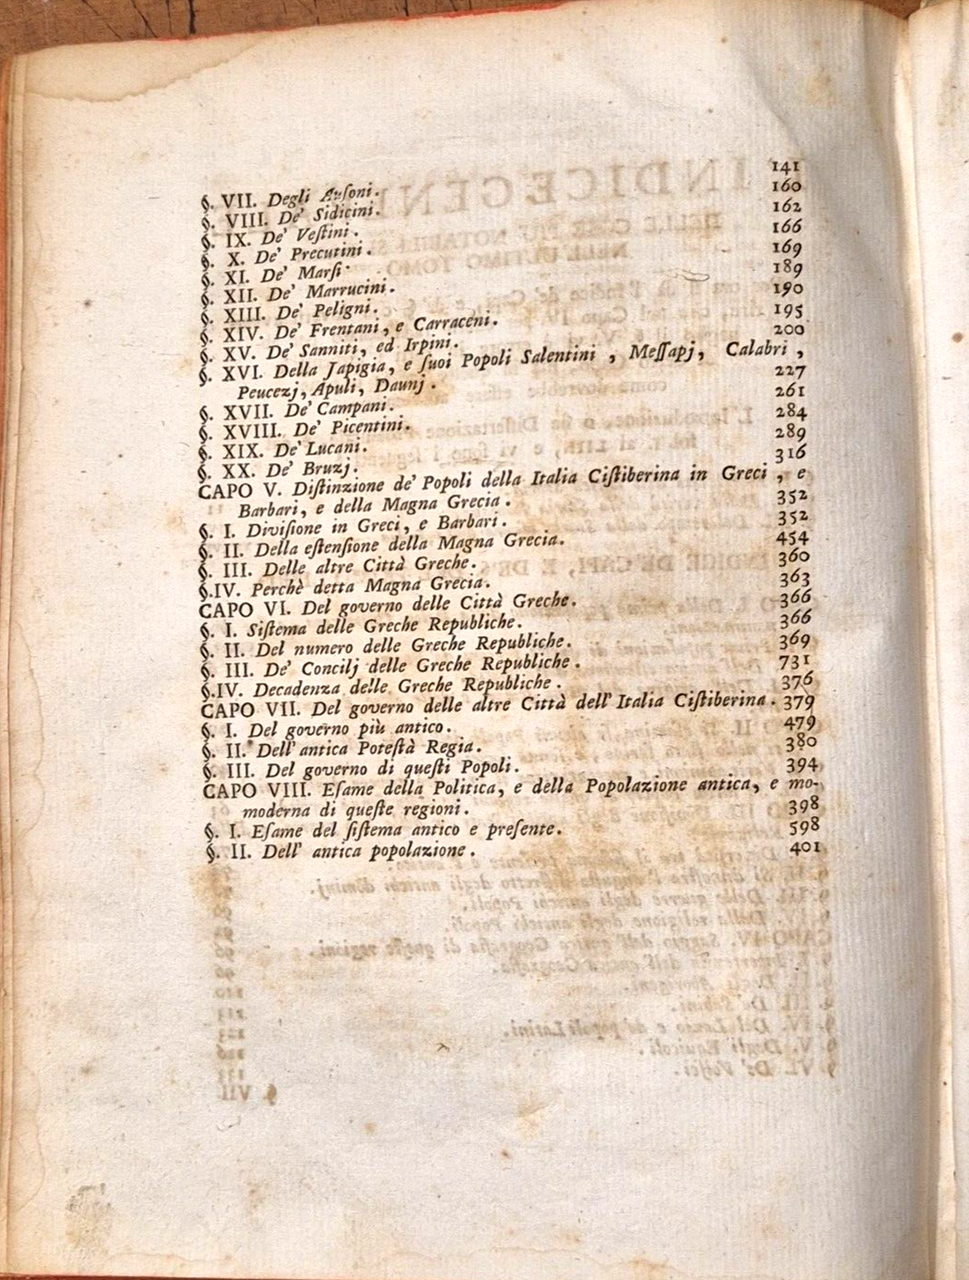 §. VII. Degli Auſoni. 141
§. VIII. De' Sidicini. 160
§. IX. De' Veſtini. 162
§. X. De' Precutini. 166
§. XI. De' Marſi. 169
§. XII. De' Marrucini. 189
§. XIII. De' Peligni. 190
§. XIV. De' Frentani, e Carraceni. 195
§. XV. De' Sanniti, ed Irpini. 200
§. XVI. Della Japigia, e ſuoi Popoli Salentini, Meſſapj, Calabri,
Peucezj, Apuli, Daunj. 227
§. XVII. De' Campani. 261
§. XVIII. De' Picentini. 284
§. XIX. De' Lucani. 289
§. XX. De' Bruzj. 316
CAPO V. Diſtinzione de' Popoli della Italia Ciſtiberina in Greci, e
Barbari, e della Magna Grecia. 352
§. I. Diviſione in Greci, e Barbari. 352
§. II. Della eſtenſione della Magna Grecia. 454
§. III. Delle altre Città Greche. 360
§.IV. Perchè detta Magna Grecia. 363
CAPO VI. Del governo delle Città Greche. 366
§. I. Siſtema delle Greche Republiche. 366
§. II. Del numero delle Greche Republiche. 369
§. III. De' Concilj delle Greche Republiche. 731
§.IV. Decadenza delle Greche Republiche. 376
CAPO VII. Del governo delle altre Città dell' Italia Ciſtiberina. 379
§. I. Del governo più antico. 479
§. II. Dell' antica Poteſtà Regia. 380
§. III. Del governo di queſti Popoli. 394
CAPO VIII. Eſame della Politica, e della Popolazione antica, e mo-
moderna di queſte regioni. 398
§. I. Eſame del ſiſtema antico e preſente. 598
§. II. Dell' antica popolazione. 401